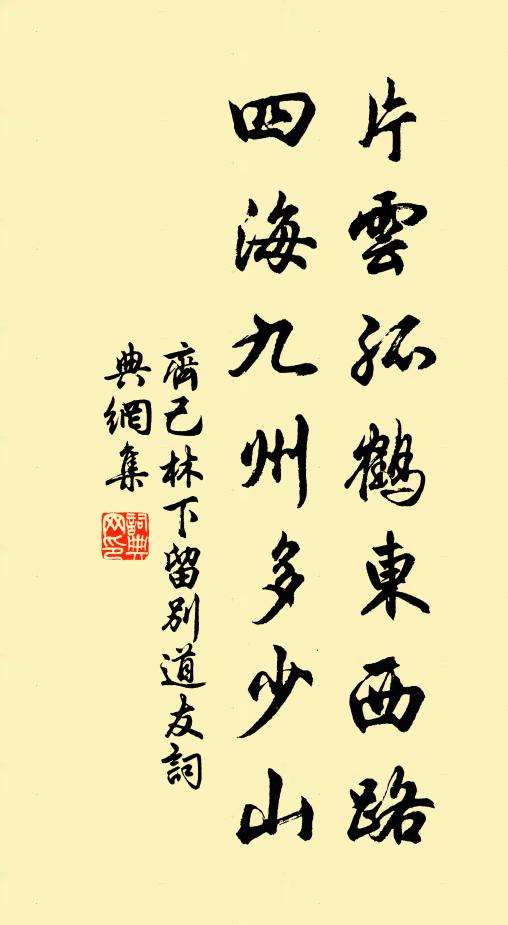 片雲孤鶴東西路
四海九州多少山
齊己林下留別道友詞
典網集
詞典網印